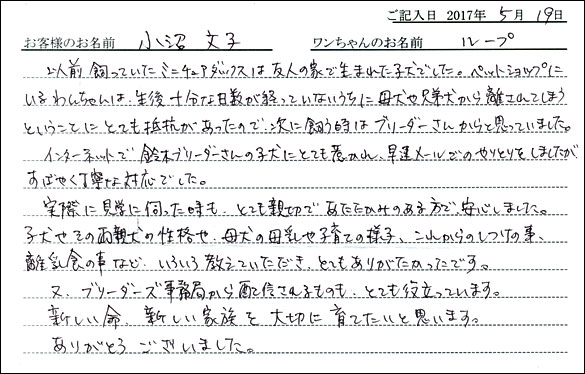 ご記入日 2017年 5月 19日
お客様のお名前 小沼 文子 ワンちゃんのお名前 ループ
以前飼っていたミニチュアダックスは友人の家で生まれた子犬でした。ペットショップに
いるわんちゃんは、生後十分な日数が経っていないうちに母犬や兄弟犬から離されてしまう
ということにとても抵抗があったので、次に飼う時はブリーダーさんからと思っていました。
インターネットで鈴木ブリーダーさんの子犬にとても惹かれ、早速メールでのやりとりをしましたが
すばやく丁寧な対応でした。
実際に見学に伺った時も、とても親切であたたかみのある方で、安心しました。
子犬やその両親犬の性格や、母犬の母乳や子育ての様子、これからのしつけの事、
離乳食の事など、いろいろ教えていただき、とてもありがたかったです。
又、ブリーダーズ事務局から配信されるものも、とても役立っています。
新しい命、新しい家族を大切に育てたいと思います。
ありがとうございました。